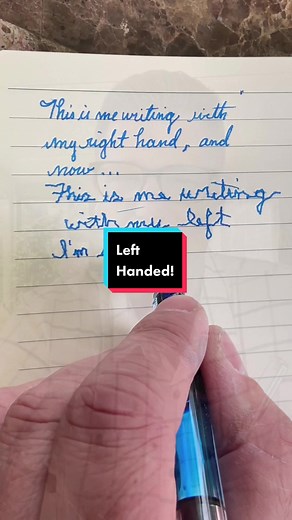 This is me writing with
my right hand, and
now...
This is me writing
with my left
I'm
Left
Handed!